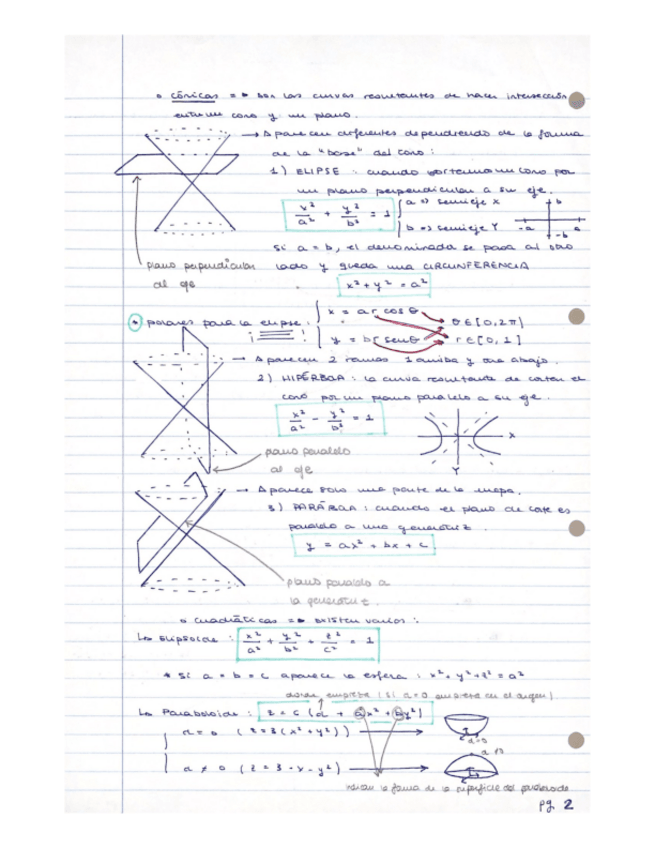 ◦ cónicas => son las curvas resultantes de hacer intersección
entre un cono y un plano.
→ Aparecen diferentes dependiendo de la forma
de la "base" del cono:
1) ELIPSE : cuando cortamos un cono por
un plano perpendicular a su eje.
x²/a² + y²/b² = 1 { a => semieje X
b => semieje Y
b
-a a
-b
Si a = b, el denominada se pasa al otro
plano perpendicular lado y queda una CIRCUNFERENCIA
al eje
x² + y² = a²
polares para la elipse: { x = a r cos θ θ ∈ [0, 2π)
¡ ! y = b r sen θ r ∈ [0, 1]
→ Aparecen 2 ramas 1 arriba y otra abajo.
2) HIPÉRBOA : la curva resultante de cortar el
cono por un plano paralelo a su eje.
x²/a² - y²/b² = 1
X
Y
plano paralelo
al eje
→ Aparece solo una parte de la
3) PARÁBOA : cuando el plano de corte es
paralelo a una generatriz.
y = ax² + bx + c
plano paralelo a
la generatriz.
◦ cuadráticas => existen varios :
Lo Elipsoide : x²/a² + y²/b² + z²/c² = 1
* Si a = b = c aparece la esfera : x² + y² + z² = a²
donde empieza (si d=0 empieza en el origen).
Lo Paraboloide : z = c (d + ax² + by²)
d = 0 ( z = 3(x² + y²) )
d = 0
d ≠ 0 ( z = 3 - x - y² )
indican la forma de la superficie del paraboloide
pg 2